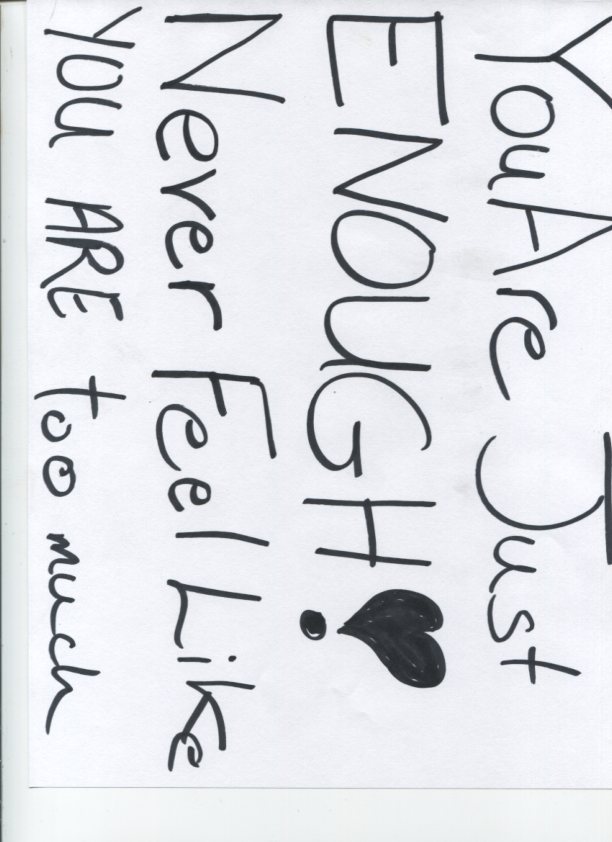 You Are Just
ENOUGH!
Never Feel Like
YOU ARE too much